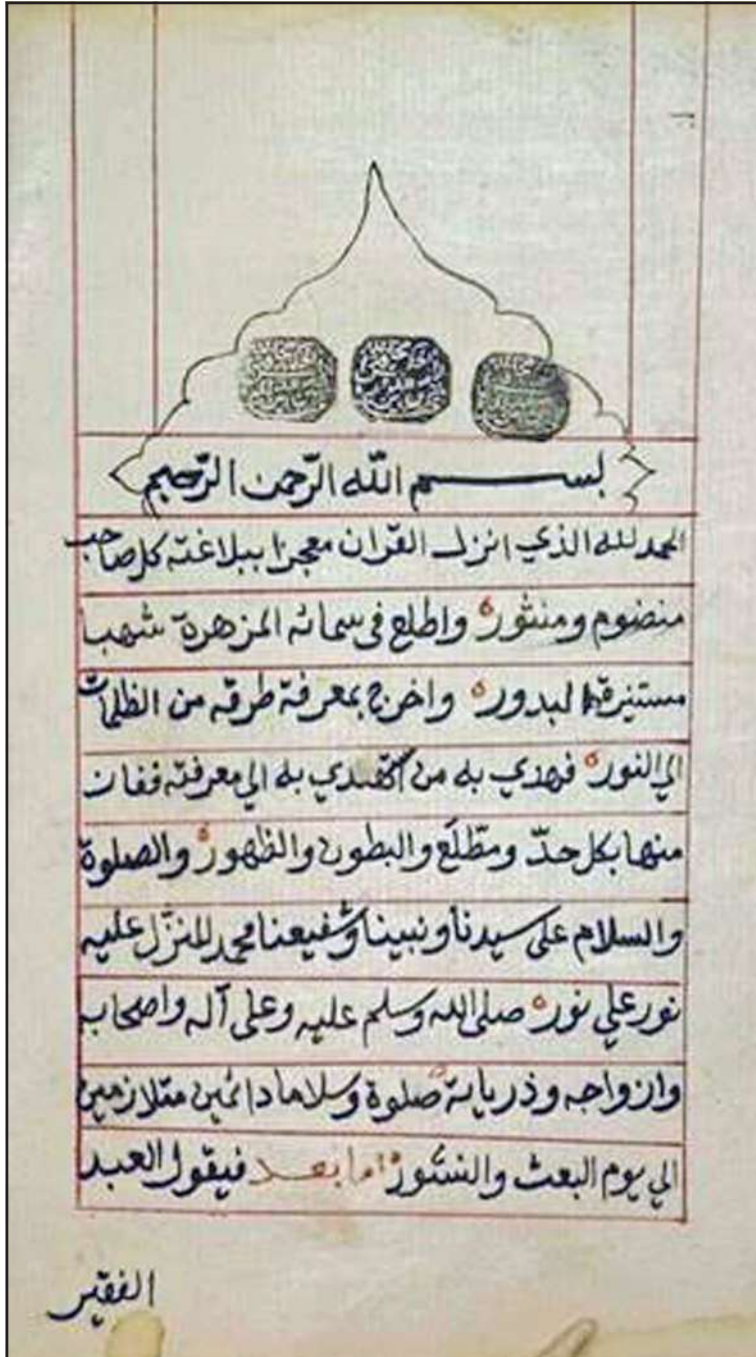 بســـــم الله الرّحمن الرّحيم
الحمد لله الذي انزل القرآن معجزا ببلاغته كل صاحب
منضوم ومنثور ه واطلع في سمائه المزهرة شهبا
مستنيرة البدور ه واخرج بمعرفة طرقه من الظلمات
الي النور ه فهدي به من اقتدي به الي معرفته ففاز
منها بكل حدّ ومطّلع والبطون والظهور ه والصلوة
والسلام على سيدنا ونبينا وشفيعنا محمد المنزّل عليه
نور علي نور ه صلى الله وسلم عليه وعلى آله واصحابه
وازواجه وذرياته صلوة وسلاما دائمين متلازمين
الي يوم البعث والنشور ه اما بعد فيقول العبد
الفقير